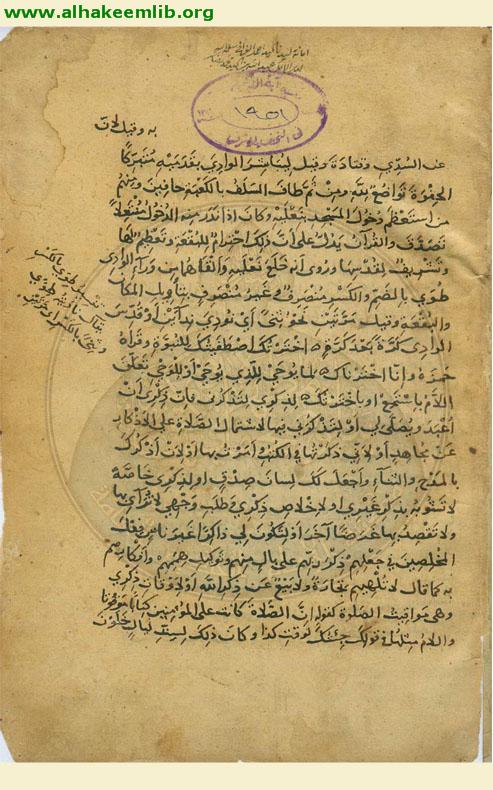 www.alhakeemlib.org
١٩٥١
به وقيل لان
عن السُّدِّي وقتادة وقيل ليباشر الوادي بقدميه متبركا
الحفوة تواضع لله ومن ثم طاف السلف بالكعبة حافين ومنهم
من استعظم دخول المسجد بنعليه وكان اذا ندر منه الدخول منتعلا
تصدق والقرآن يدل على ان ذلك احترام للبقعة وتعظيم لها
وتشريف لقدسها وروى أنه خلع نعليه وألقاهما من وراء الوادي
طوى بالضم والكسر منصرف وغير منصرف بتأويل المكان
والبقعة وقيل مرتين نحو ثنى أي نودي نداءين او قدس
الوادي كرة بعد كرة اخترتك اصطفيتك للنبوة وقرأ
حمزة وإنا اخترناك لما يوحى للذي يوحى او للوحي تعلق
اللام باستمع او باخترتك لذكري لتذكرني فان ذكري ان
أعبد ويصلى لي او لتذكرني فيها لاشتمال الصلاة على الاذكار
عن مجاهد او لاني ذكرتها في الكتب وأمرت بها او لان أذكرك
بالمدح والثناء وأجعل لك لسان صدق او لذكري خاصة
لا تشوبه بذكر غيري او لاخلاص ذكري وطلب وجهي لا ترائي بها
ولا تقصد بها غرضا آخر او لتكون لي ذاكرا غير ناس فعل
المخلصين في جعلهم ذكر ربهم على بال منهم وتوكيل هممهم وأفكارهم
به كما قال لا تلهيهم تجارة ولا بيع عن ذكر الله او لاوقات ذكري
وهي مواقيت الصلوة كقوله ان الصلاة كانت على المؤمنين كتابا موقوتا
واللام مثلها في قولك جئتك لوقت كذا وكان ذلك لست ليال خلون